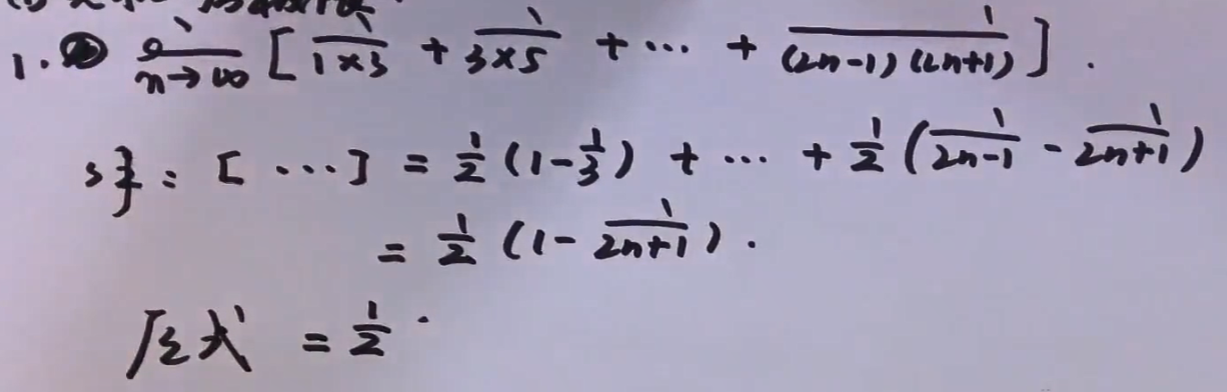 1. n→∞ [1/(1×3) + 1/(3×5) + ··· + 1/((2n-1)(2n+1))].
[···] = 1/2(1-1/3) + ··· + 1/2(1/(2n-1) - 1/(2n+1))
= 1/2(1-1/(2n+1)).
原式 = 1/2.